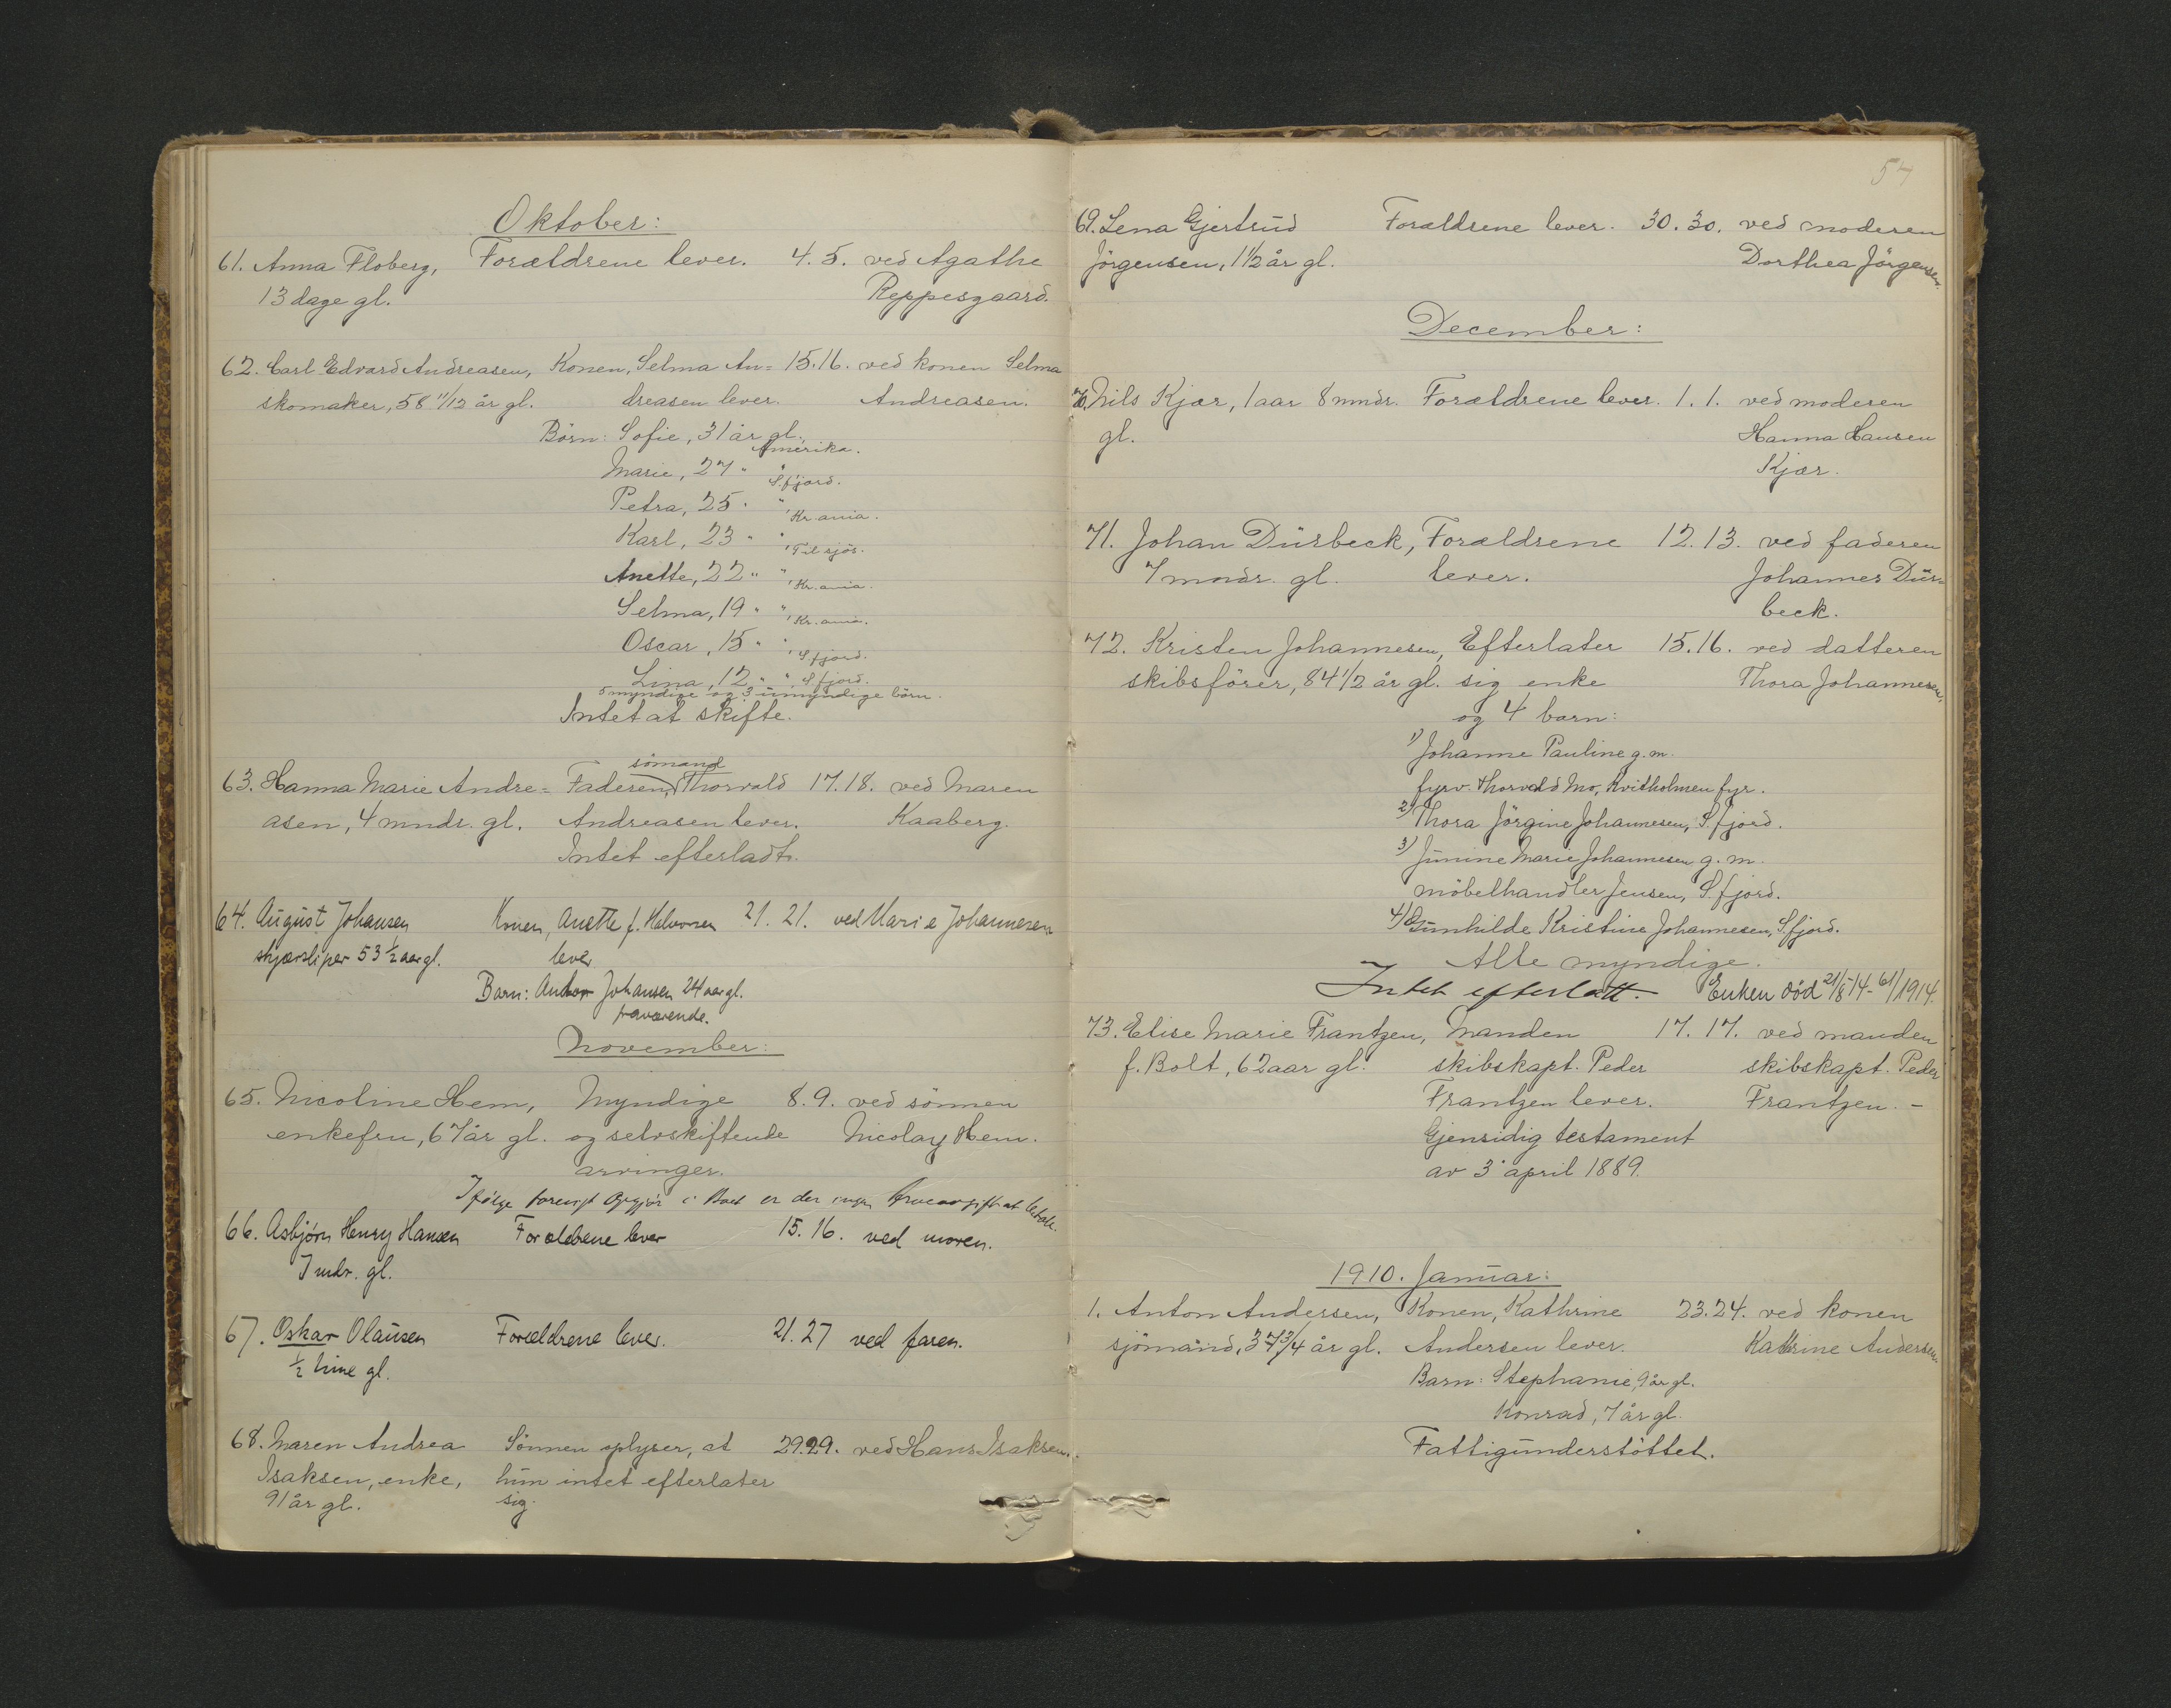 Oktober:
61. Anna Floberg, Forældrene lever. 4. 5. ved Agathe
13 dage gl. Reppesgaard.
62. Carl Edvard Andreasen, Konen, Selma An= 15.16. ved konen Selma
skomaker, 58 11/12 år gl. dreasen lever. Andreasen.
Børn: Sofie, 31 år gl., Amerika.
Marie, 27 " " S.fjord.
Petra, 25 " ", Kr.ania.
Karl, 23 " ", Til sjøs.
Anette, 22 " ", Kr.ania.
Selma, 19 " ", Kr.ania.
Oscar, 15 " ", S.fjord.
Lina, 12 " " S.fjord.
5 myndige og 3 umyndige børn.
Intet at skifte.
sømand
63. Hanna Marie Andre= Faderen, Thorvald 17.18. ved Maren
asen, 4 mndr. gl. Andreasen lever. Kaaberg.
Intet efterladt.
64. August Johansen Konen, Anette f. Halvorsen 21. 21. ved Marie Johannesen
skjærsliper 53 1/2 aar gl. lever
Barn: Anton Johansen 24 aar gl.
fraværende.
November:
65. Nicoline Hem, Myndige 8. 9. ved sønnen
enkefru, 67 år gl. og selvskiftende Nicolay Hem.
arvinger.
Ifølge forevist Opgjør i Boet er der ingen Arveavgift at betale.
66. Asbjørn Henry Hansen Forældrene lever 15. 16. ved moren.
7 mdr. gl.
67. Oskar Olausen Forældrene lever. 21. 27 ved faren.
1/2 time gl.
68. Maren Andrea Sønnen oplyser, at 29.29. ved Hans Isaksen.
Isaksen, enke, hun intet efterlater
91 år gl. sig.
57
69. Lena Gjertrud Forældrene lever. 30. 30. ved moderen
Jørgensen, 1 1/2 år gl. Dorthea Jørgensen.
December:
70. Nils Kjær, 1 aar 8 mndr. Forældrene lever. 1. 1. ved moderen
gl. Hanna Hansen
Kjær.
71. Johan Dürbeck, Forældrene 12. 13. ved faderen
7 mndr. gl. lever. Johannes Dür=
beck.
72. Kristen Johannesen, Efterlater 15.16. ved datteren
skibsfører, 84 1/2 år gl. sig enke Thora Johannesen,
og 4 barn:
1) Johanne Pauline g.m.
fyrv. Thorvald Mo, Kvitholmen fyr.
2) Thora Jørgine Johannesen, S.fjord.
3) Junine Marie Johannesen g. m.
møbelhandler Jensen, S.fjord.
4) Gunhilde Kristine Johannesen, S.fjord.
Alle myndige.
Intet efterlatt. Enken død 21/8 14 - 61/1914.
73. Elise Marie Frantzen, Manden 17. 17. ved manden
f. Bolt, 62 aar gl. skibskapt. Peder skibskapt. Peder
Frantzen lever. Frantzen. -
Gjensidig testament
av 3' april 1889.
1910. Januar:
1. Anton Andersen, Konen, Kathrine 23.24. ved konen
sjømand, 37 3/4 år gl. Andersen lever. Kathrine Andersen
Barn: Stephanie, 9 år gl.
Konrad, 7 år gl.
Fattigunderstøttet.